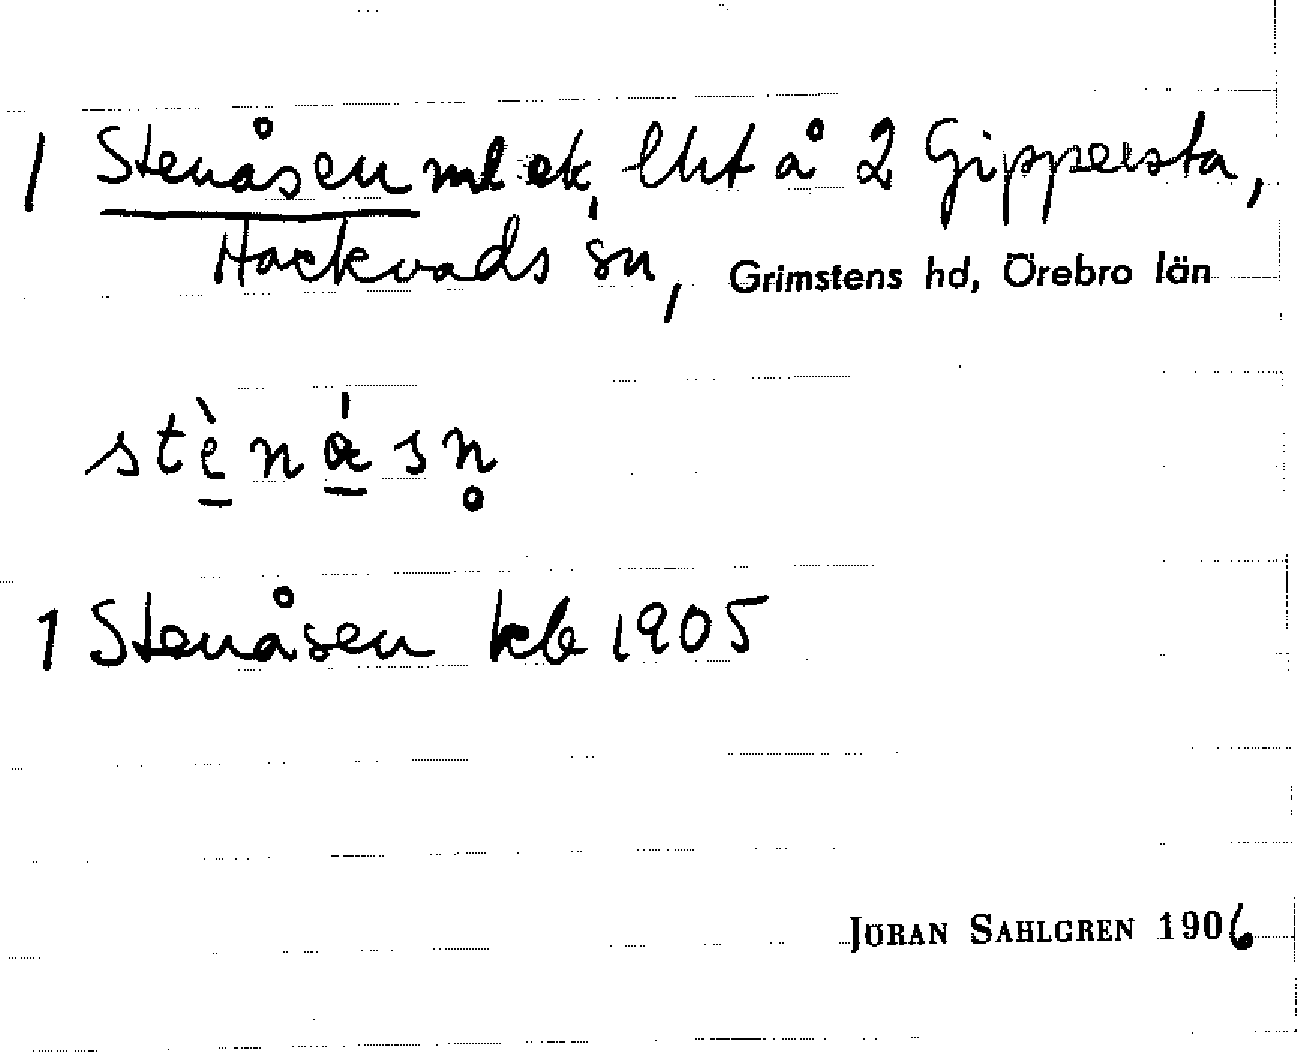 1 Stenåsen ml ek, lht å 2 Gippersta,
Hackvads sn, Grimstens hd, Örebro län
stènåsn̥
1 Stenåsen kb 1905
JÖRAN SAHLGREN 1906